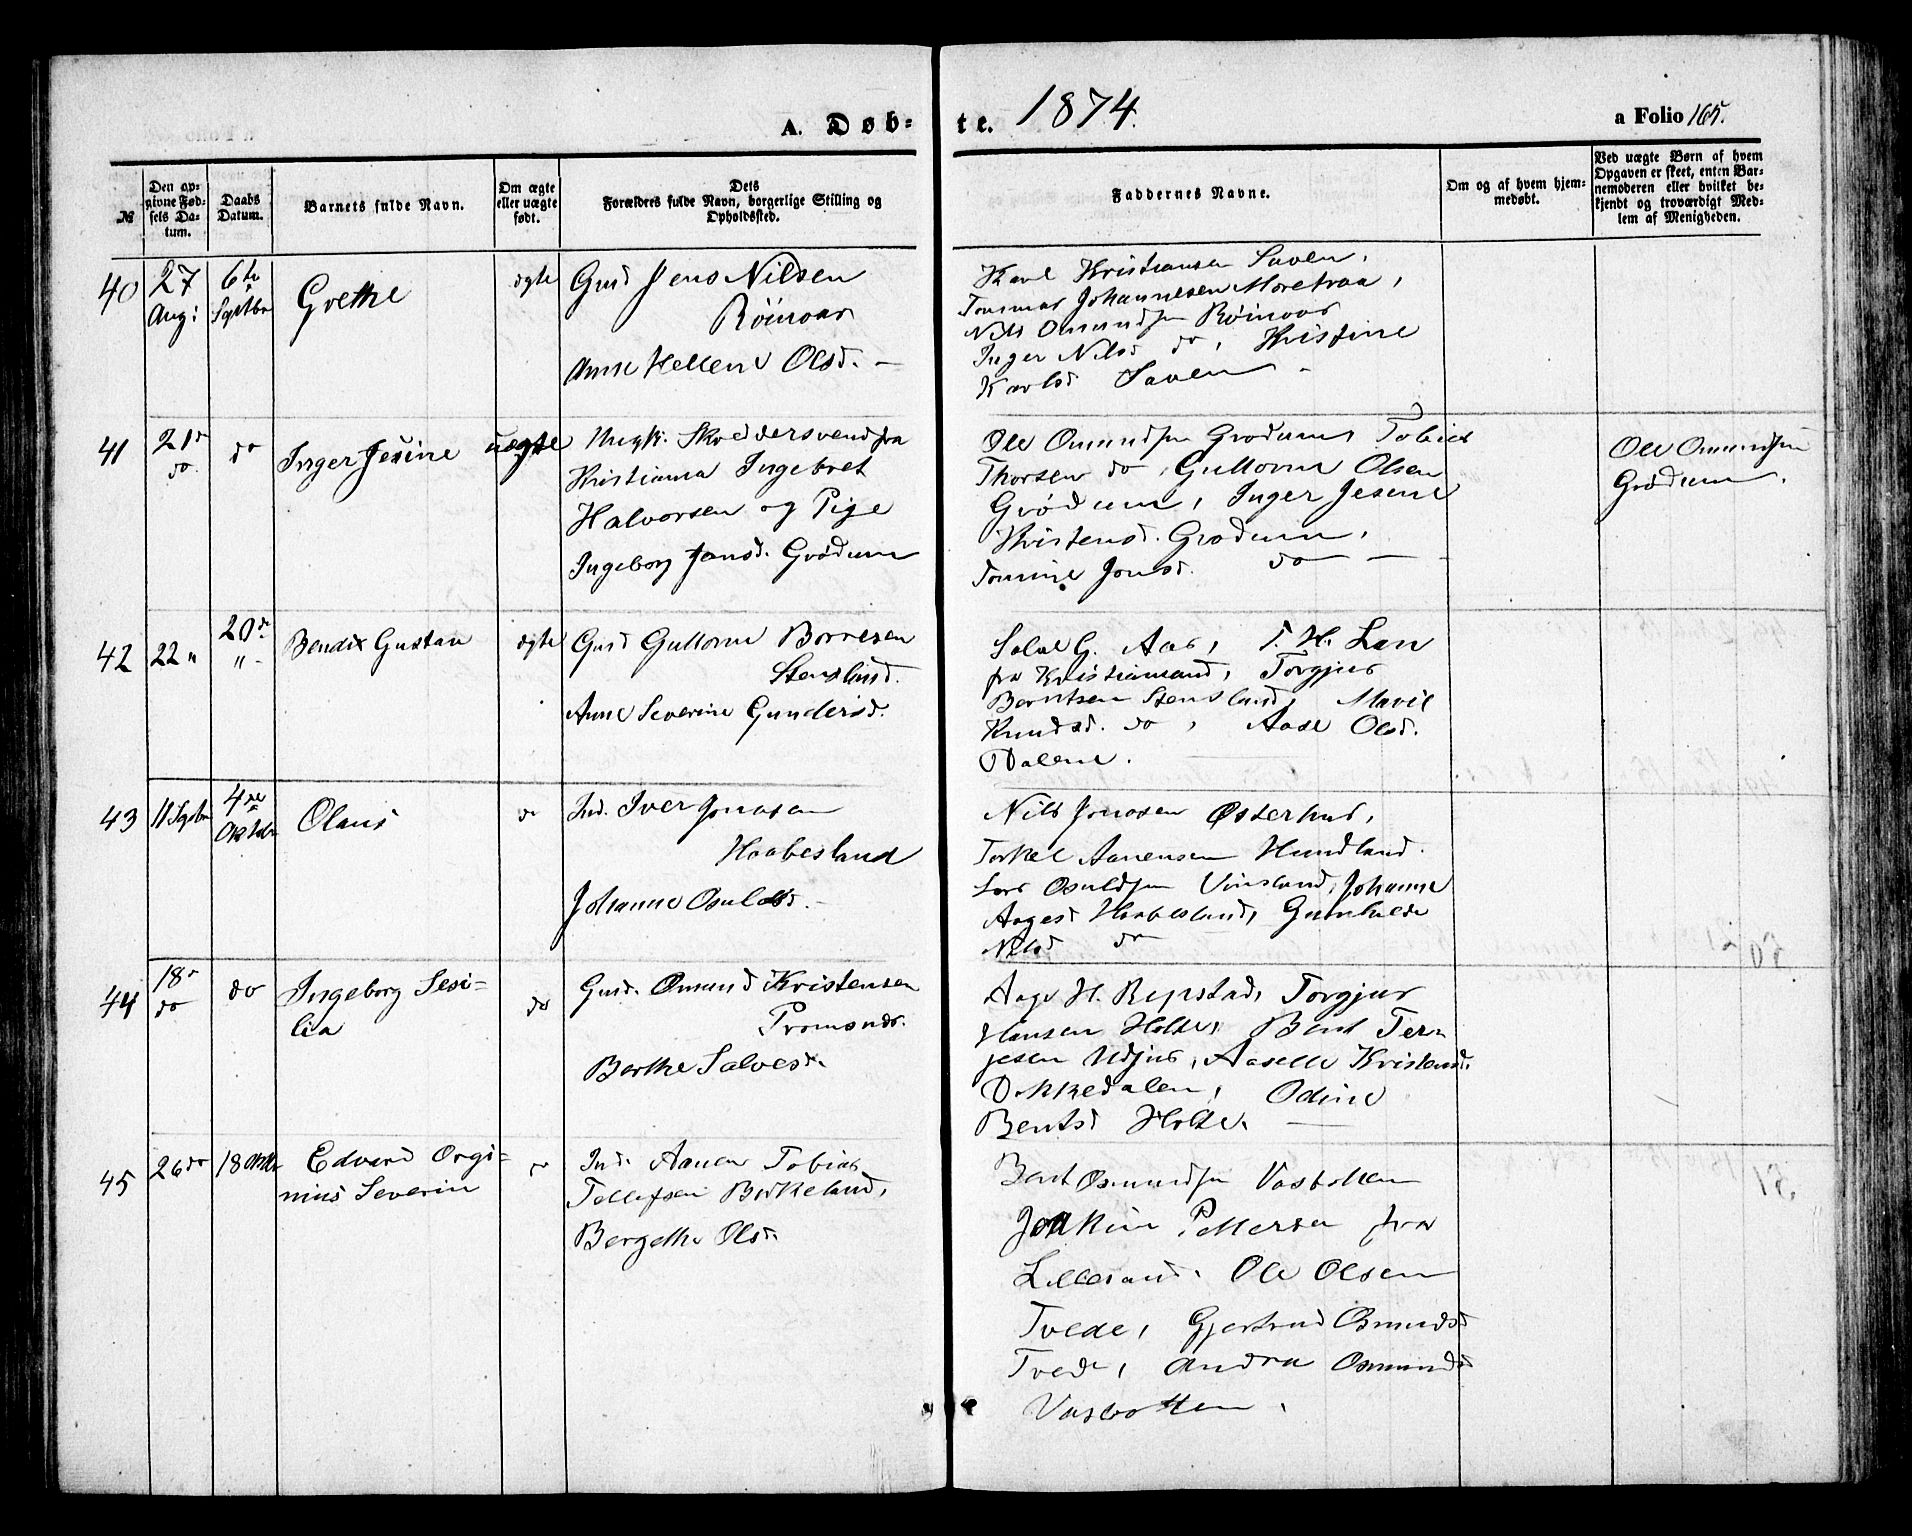 A. Døb-te. 1874.
a Folio 165.
№
Den opgivne Fødsels Datum.
Daabs Datum.
Barnets fulde Navn.
Om ægte eller uægte født.
Dets Forældres fulde Navn, borgerlige Stilling og Opholdssted.
Faddernes Navne.
Om og af hvem hjemmedøbt.
Ved uægte Børn af hvem Opgaven er skeet, enten Barnemoderen eller hvilket bekjendt og troværdigt Medlem af Menigheden.
40
27 Aug:
6te Septbr
Grethe
ægte
Gmd Jens Nilsen
Anne Hellene Olsd. —
Karl Kristiansen Saven,
Tommas Johannesen Moretraa,
Nils Omundsen
Inger Nilsd do, Kristine
Karlsd Saven —
41
21de do
do
Inger Jesine
uægte
Ungk. Skreddersvend fra
Kristiania Ingebret
Halvorsen og Pige
Ingeborg Jonsd. Grødum
Ole Omundsen Grødum, Tobias
Thorsen do, Guttorm Olsen
Grødum, Inger Jesine
Kristensd. Grødum,
Tomine Jonsd. do —
Ole Omundsen
Grødum.
42
22 "
20de "
Bendix Gustav
ægte
Gmd Guttorm Borresen
Stensland.
Anne Severine Gundersd.
Salve G. Aas, T. H. Lan
fra Kristiansand, Torgjus
Berntsen Stensland, Marie
Knudsd. do, Aase Olsd.
Dalene.
43
11 Septbr
4de Oktobr
Olaus
do
Ind. Iver Jonasen
Haabesland
Johanne Osuldsd. —
Nils Jonasen Østerhus,
Torkel Aanensen Hundland.
Lars Osuldsen Vinsland, Johanne
Aagesd Haabesland, Gunhilde
Nilsd do
44
18de do
do
Ingeborg Sesi-
lia
do
Gmd. Omund Kristensen
Berthe Salvesd.
Aage H. Repstad, Torgjus
Hansen Holte, Bent Ter-
jesen Udjus, Aaselle Kristensd.
Dikkedalen, Odine
Bentsd Holte. —
45
26 do
18 Oktbr
Edvard Orgi-
nius Severin
do
Ind. Aanen Tobias
Tellefsen Birkeland,
Bergethe Olsd.
Bent Osmundsen Vasbotten
Joakim Pettersen fra
Lillesand. Ole Olsen
Tvede, Gjertrud Osmundsd
Tvede, Andra Osmundsd
Vasbotten,